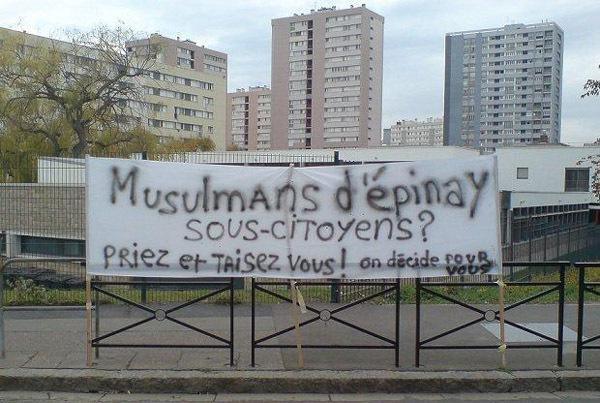 MusulmAns d'épinay
sous-citoyens?
Priez et tAisez vous! on décide POUR
VOUS